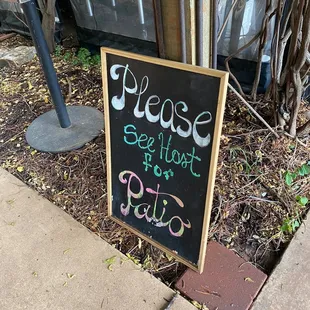 Please
See Host
for
Patio